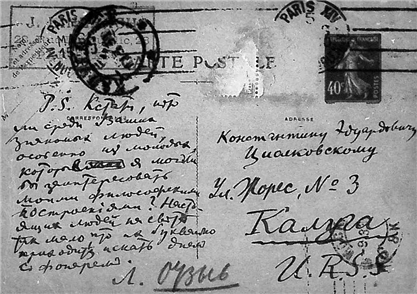 PARIS XIV
CARTE POSTALE
CORRESPONDANCE
ADRESSE
POSTES
40c
P.S. Кстати, нет
ли среди Ваших
знакомых людей,
особенно из молодых,
я мог бы
заинтересовать
моими философскими
построениями? Наст
ящих людей на свете
так мало что буквально
приходится искать днем
с фонарем.
Л. Отзыв
Константину Эдуардовичу
Циолковскому
Ул. Жорес, № 3
Калуга
U.R.S.S.